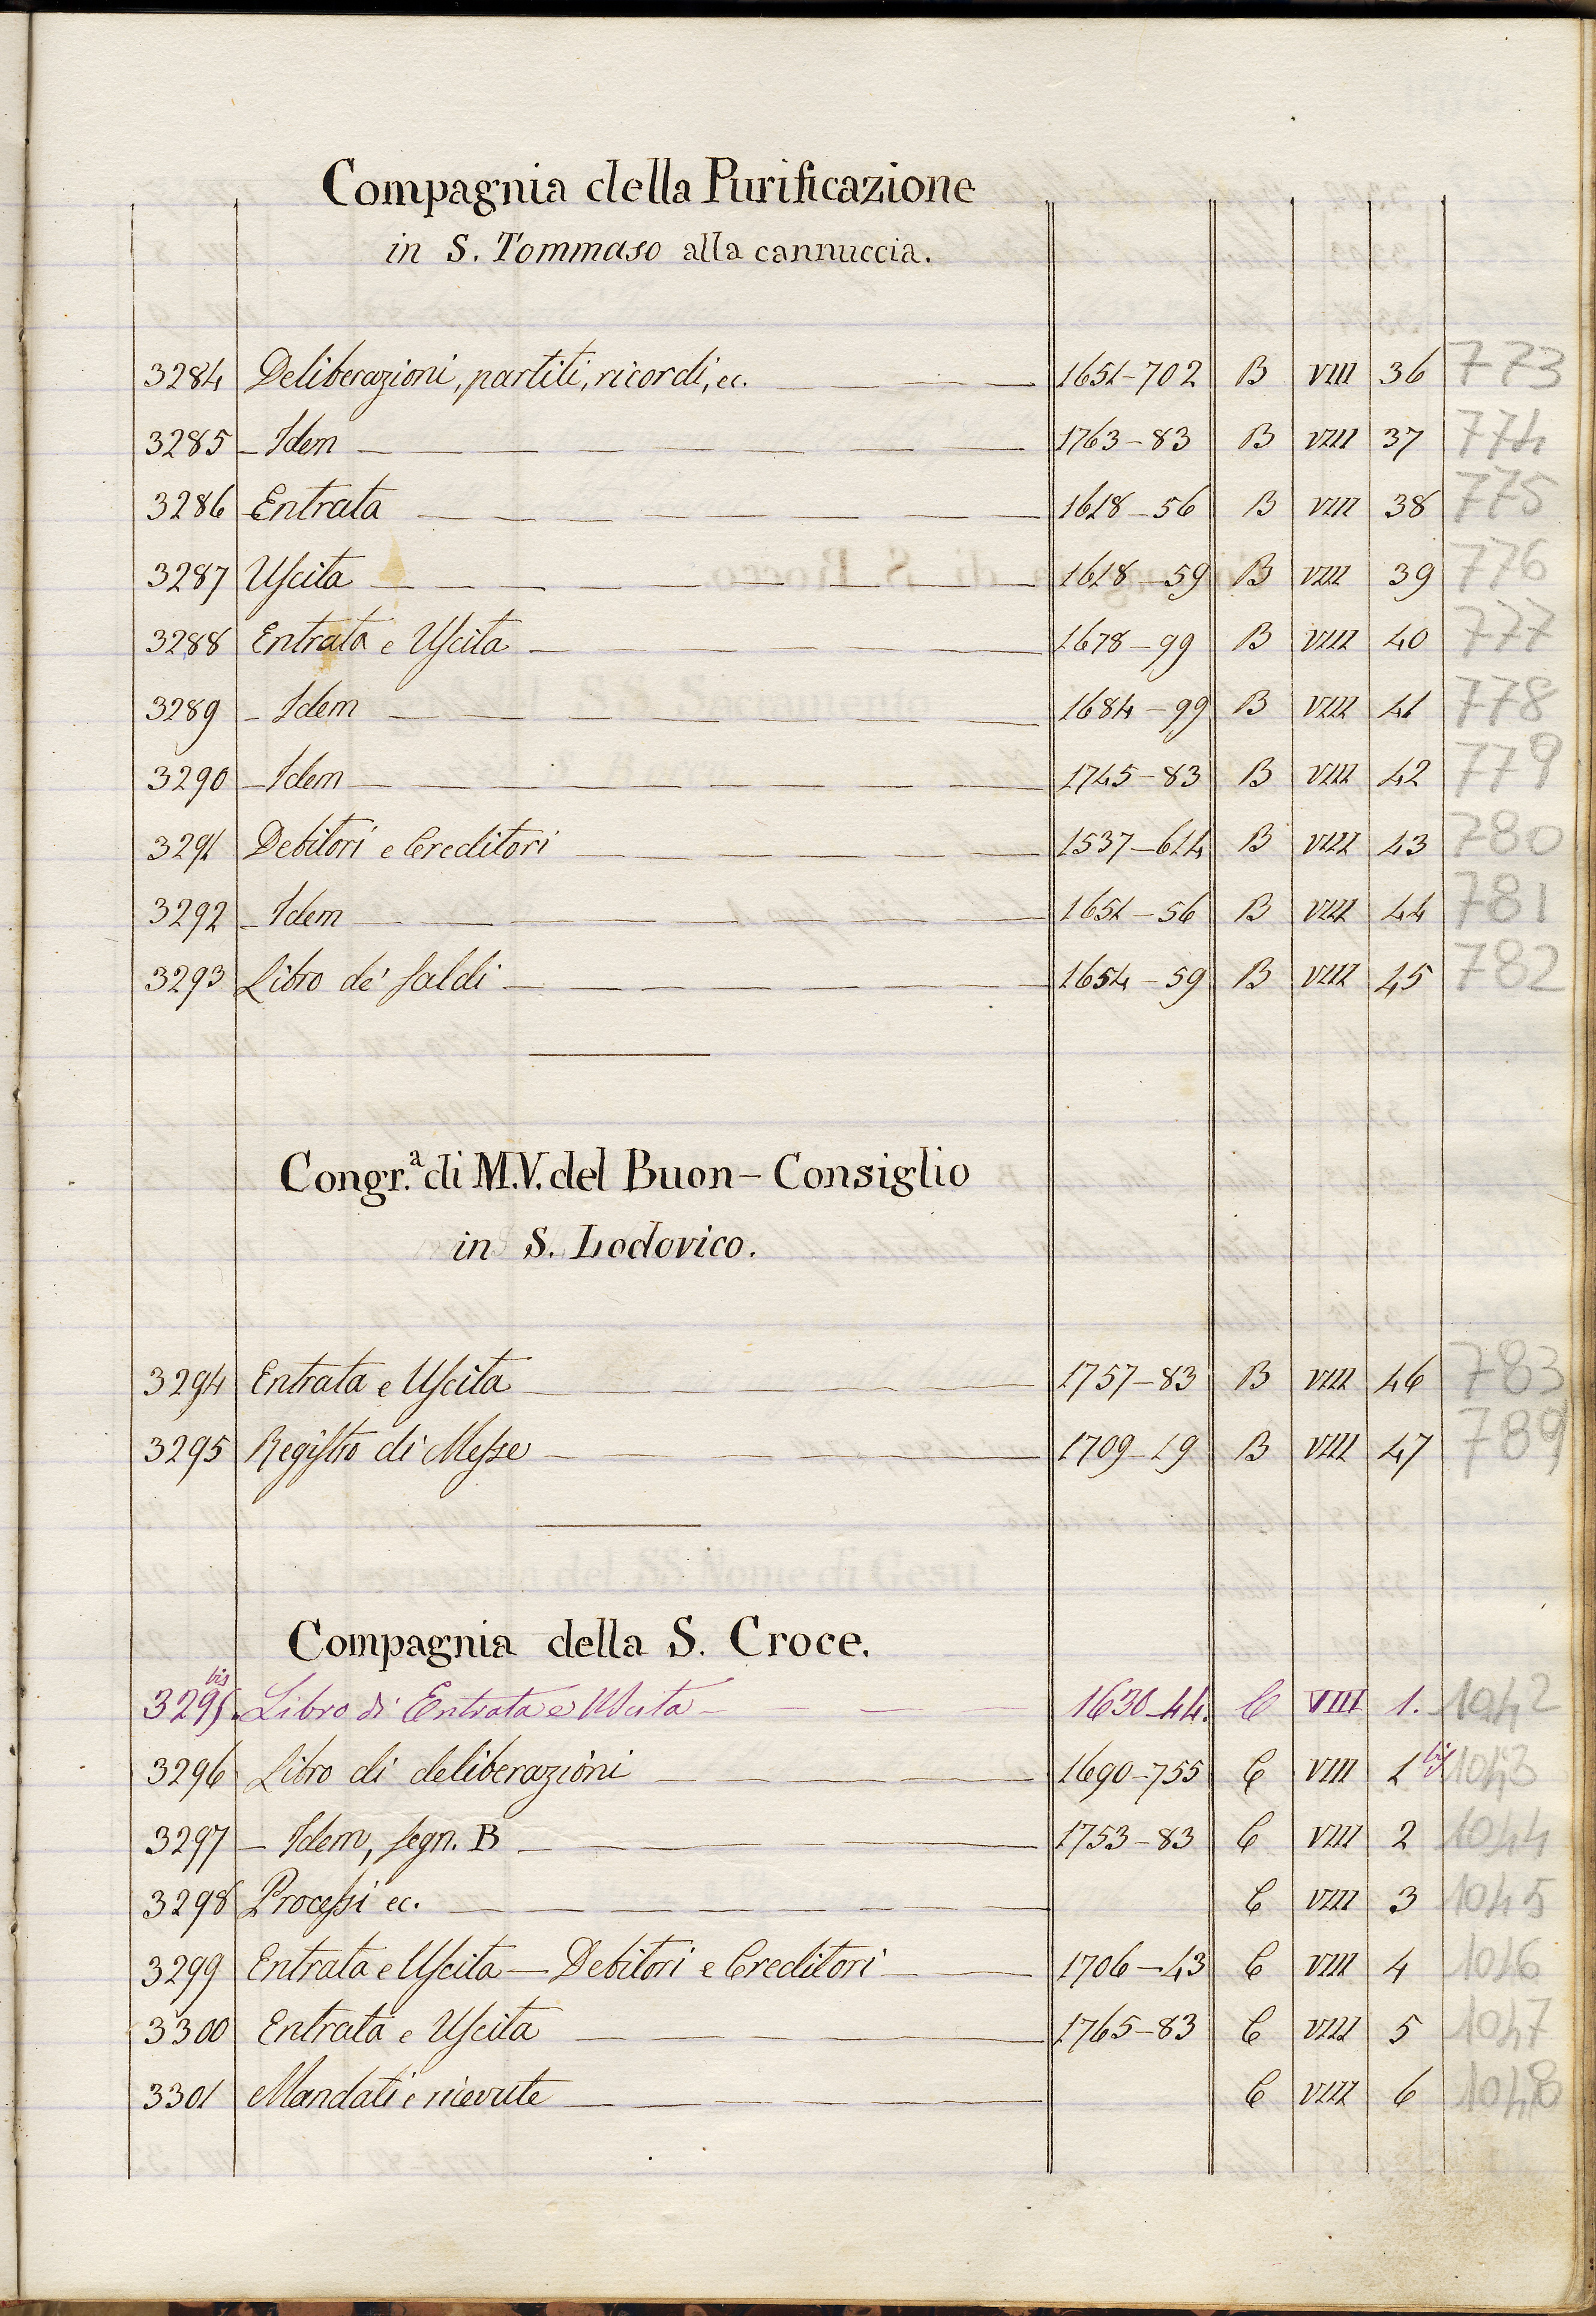 Compagnia della Purificazione
in S. Tommaso alla cannuccia.
3284 Deliberazioni, partiti, ricordi, ec. 1651-702 B VIII 36 773
3285 - Idem 1763-83 B VIII 37 774
3286 Entrata 1618-56 B VIII 38 775
3287 Uscita 1618-59 B VIII 39 776
3288 Entrata e Uscita 1678-99 B VIII 40 777
3289 - Idem 1684-99 B VIII 41 778
3290 - Idem 1745-83 B VIII 42 779
3291 Debitori e Creditori 1537-614 B VIII 43 780
3292 - Idem 1651-56 B VIII 44 781
3293 Libro de' saldi 1654-59 B VIII 45 782
Congr.ª di M.V. del Buon-Consiglio
in S. Lodovico.
3294 Entrata e Uscita 1757-83 B VIII 46 783
3295 Registro di Messe 1709-19 B VIII 47 789
Compagnia della S. Croce.
3295 bis. Libro di Entrata e Uscita 1630-44. C VIII 1. 1042
3296 Libro di deliberazioni 1690-755 C VIII 1 bis 1043
3297 - Idem, segn. B 1753-83 C VIII 2 1044
3298 Processi ec. C VIII 3 1045
3299 Entrata e Uscita — Debitori e Creditori 1706-43 C VIII 4 1046
3300 Entrata e Uscita 1765-83 C VIII 5 1047
3301 Mandati e ricevute C VIII 6 1048